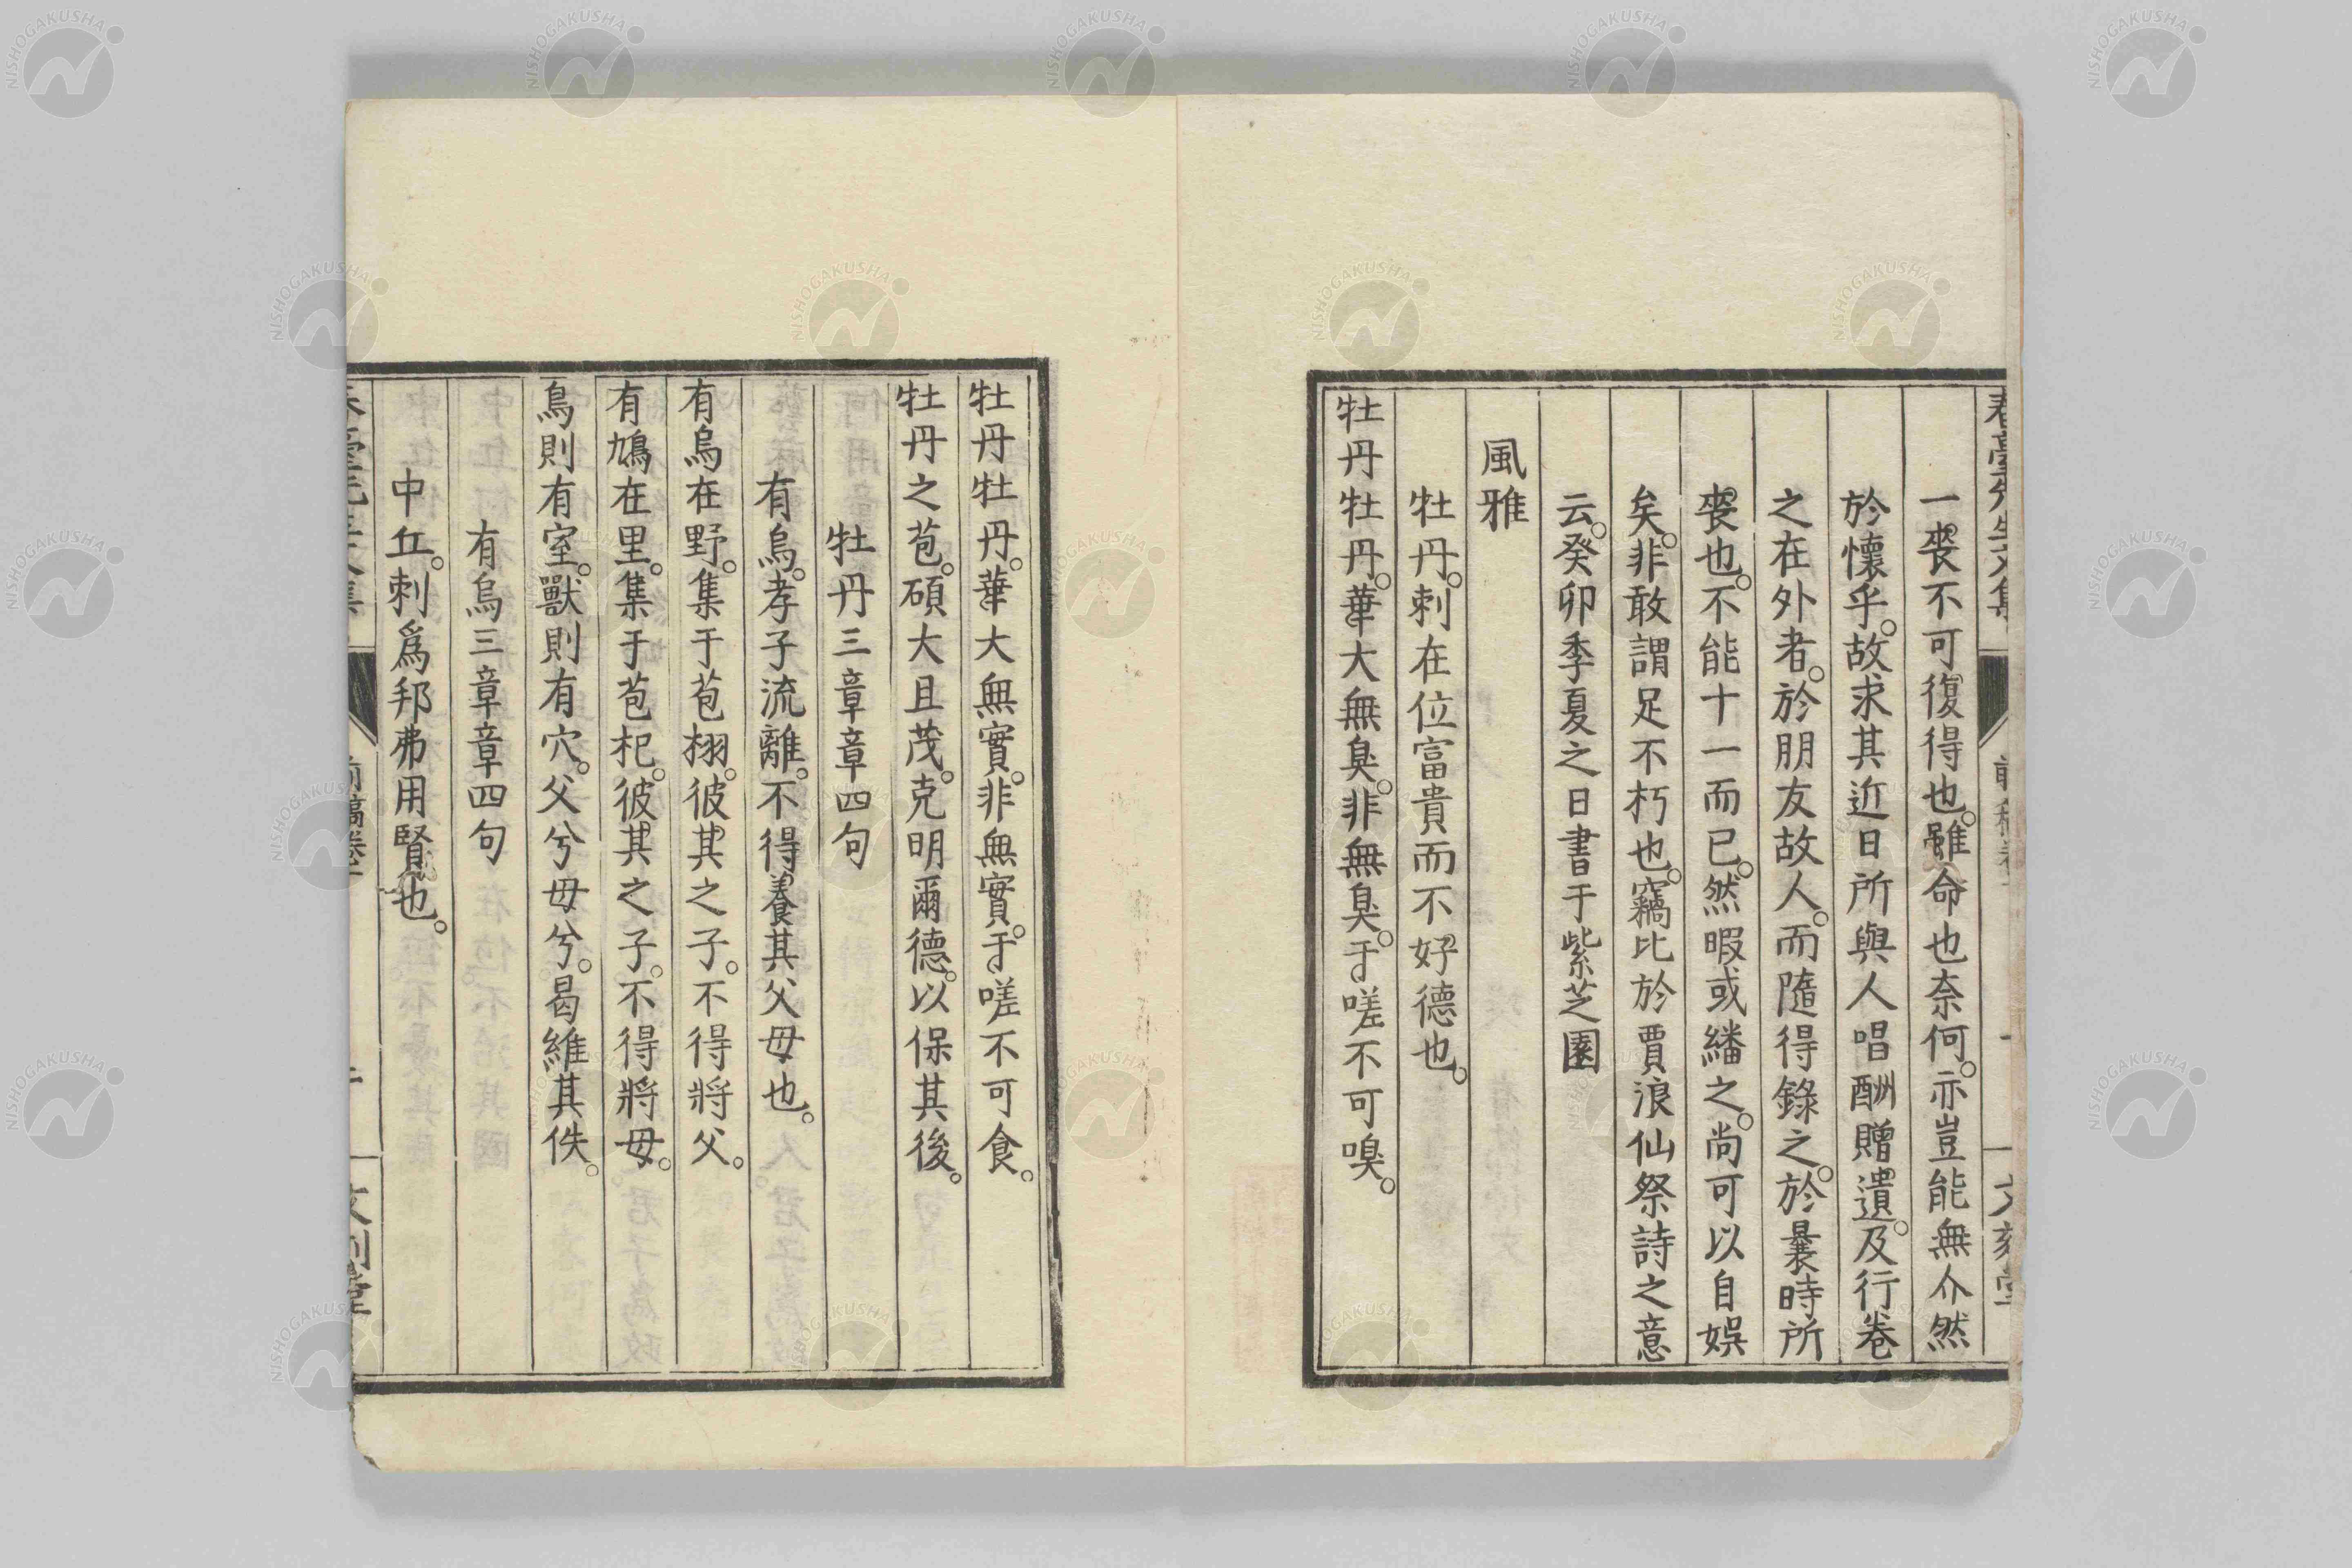 春臺先生文集
一喪不可復得也。雖命也奈何。亦豈能無介然
於懷乎。故求其近日所與人唱酬贈遺。及行卷
之在外者。於朋友故人。而隨得錄之。於曩時所
喪也。不能十一而已。然暇或繙之。尚可以自娛
矣。非敢謂足不朽也。竊比於賈浪仙祭詩之意
云。癸卯季夏之日書于紫芝園
風雅
牡丹。刺在位富貴而不好德也。
牡丹牡丹。華大無臭。非無臭。于嗟不可嗅。
牡丹牡丹。華大無實。非無實。于嗟不可食。
牡丹之苞。碩大且茂。克明爾德。以保其後。
牡丹三章章四句
有烏。孝子流離。不得養其父母也。
有烏在野。集于苞栩。彼其之子。不得將父。
有鳩在里。集于苞杞。彼其之子。不得將母。
鳥則有室。獸則有穴。父兮母兮。曷維其佚。
有烏三章章四句
中丘。刺爲邦弗用賢也。
前稿卷一
NISHOGAKUSHA